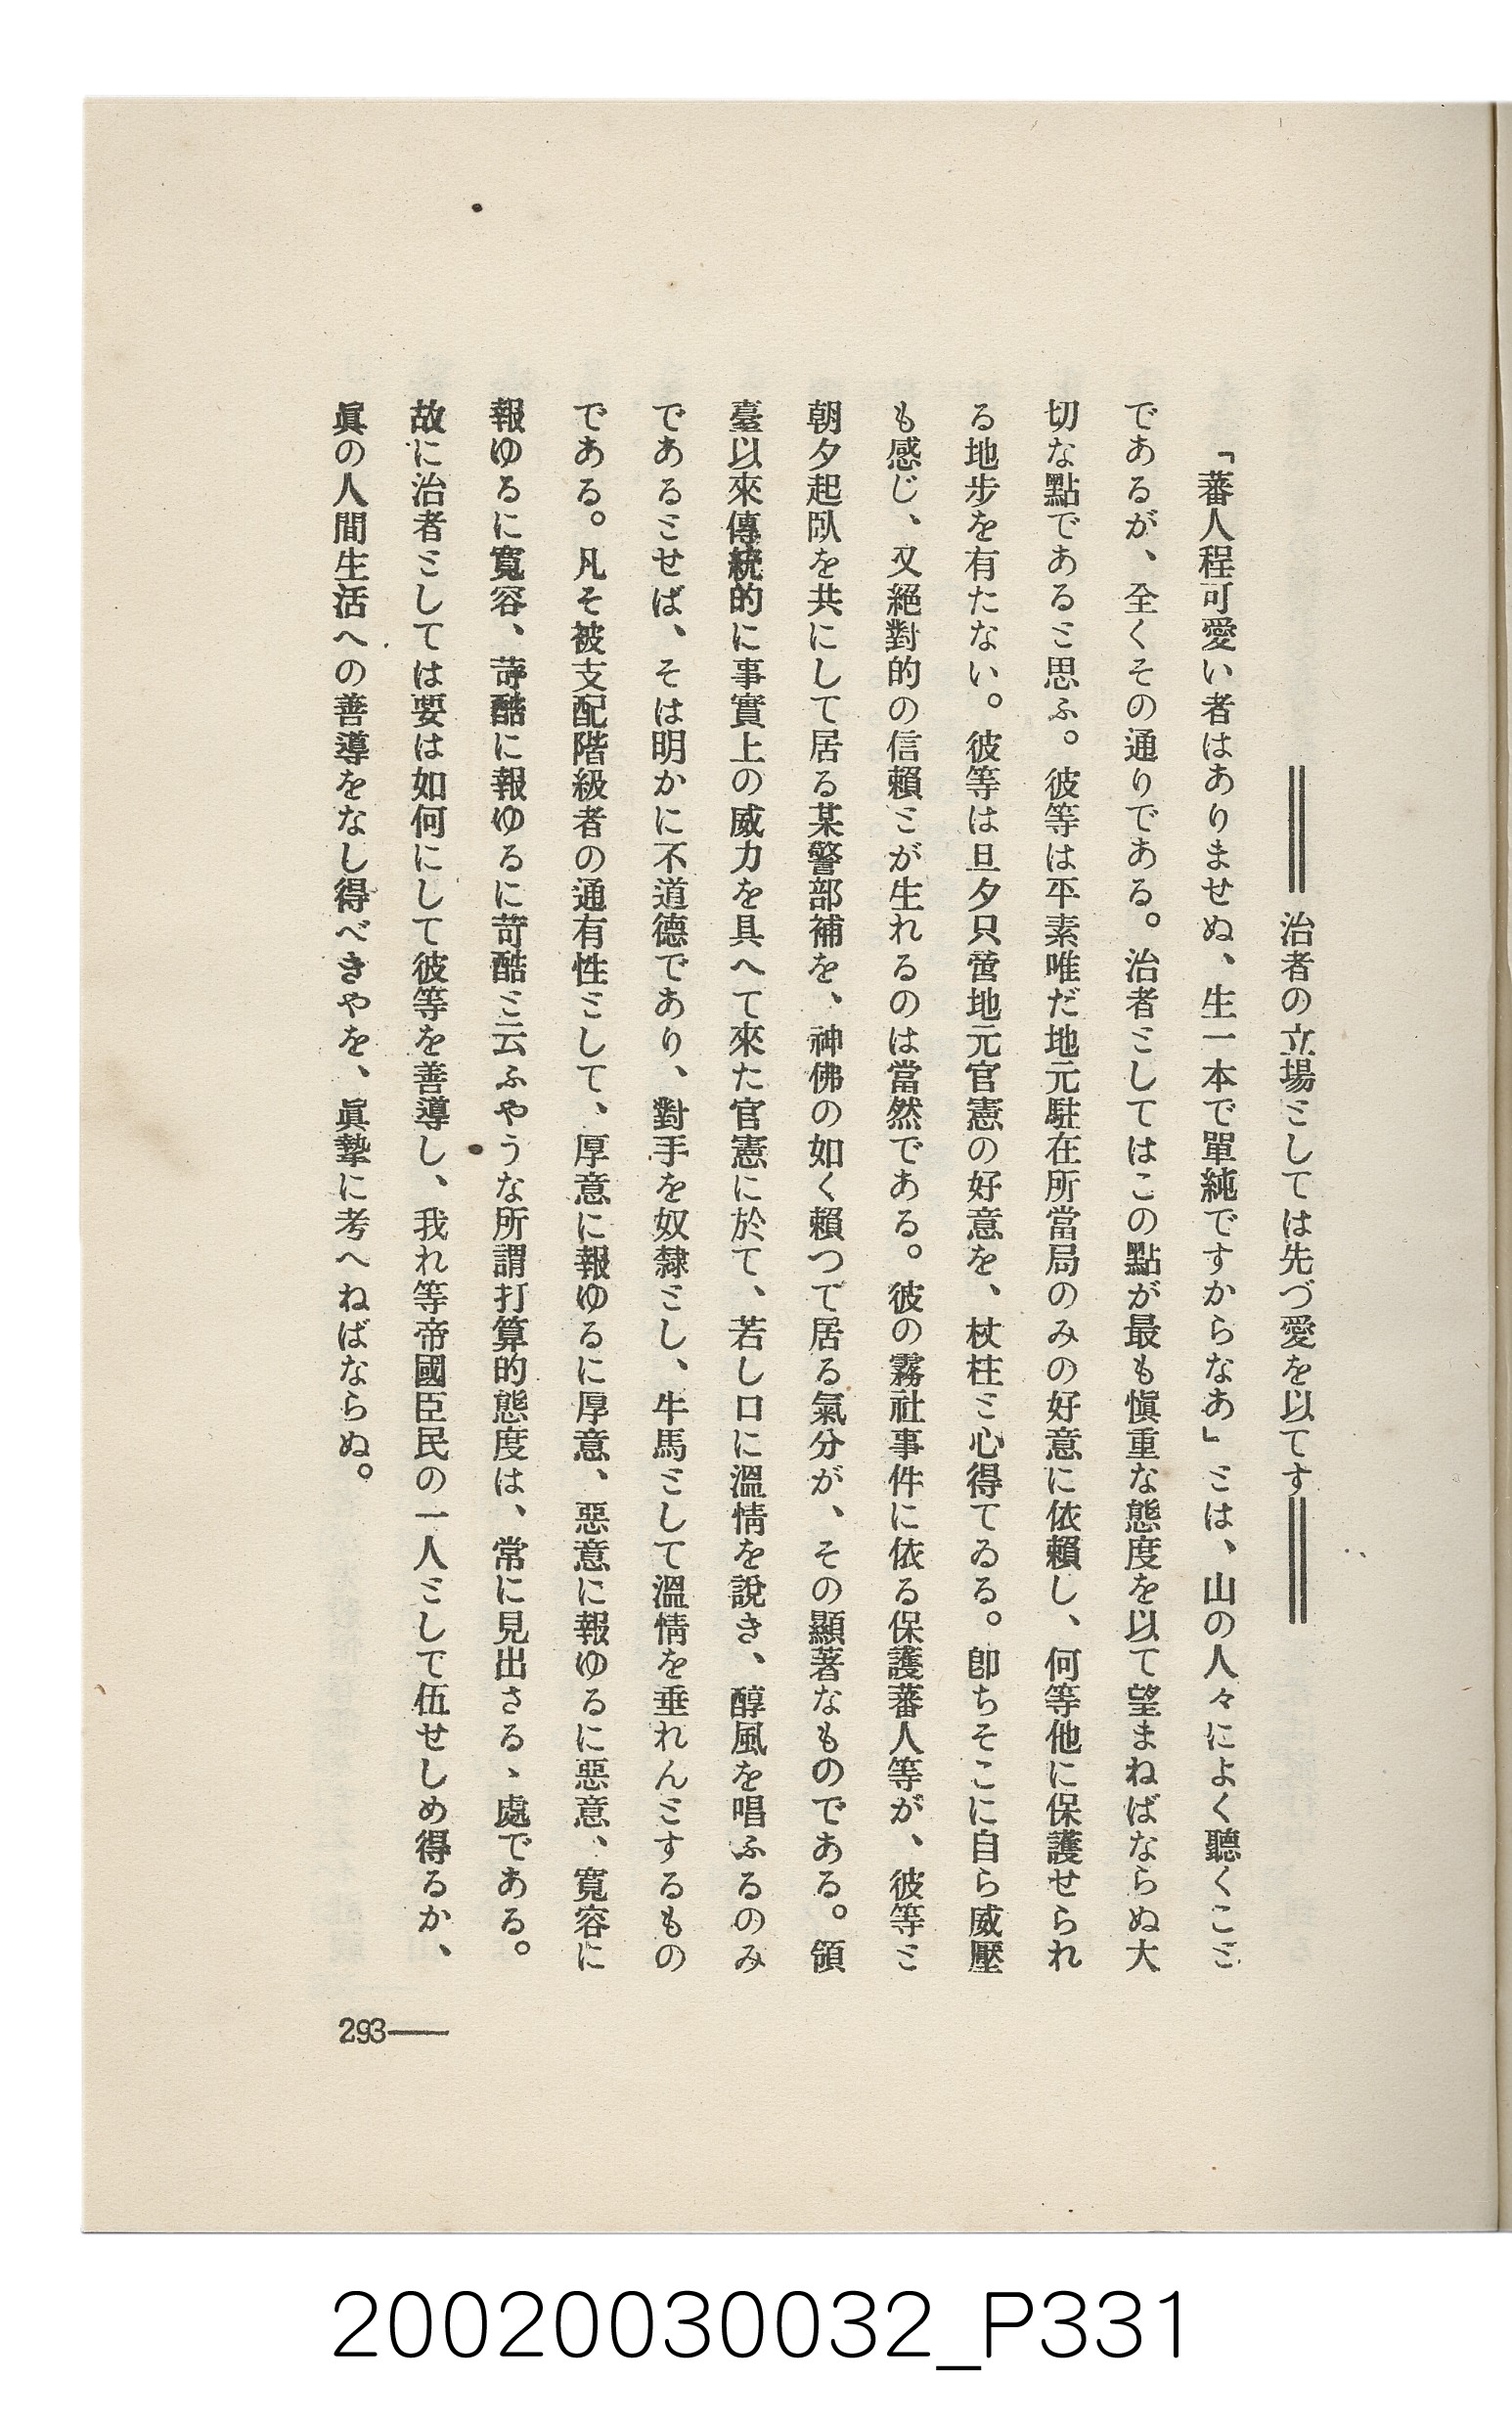 ══治者の立場ミしては先づ愛を以てす══
「蕃人程可愛い者はありませぬ、生一本で單純ですからなあ」ミは、山の人々によく聽くこミ
であるが、全くその通りである。治者ミしてはこの點が最も愼重な態度を以て望まねばならぬ大
切な點であるミ思ふ。彼等は平素唯だ地元駐在所當局のみの好意に依賴し、何等他に保護せられ
る地步を有たない。彼等は旦夕只管地元官憲の好意を、杖柱ミ心得てゐる。卽ちそこに自ら威壓
も感じ、又絕對的の信賴ミが生れるのは當然である。彼の霧社事件に依る保護蕃人等が、彼等ミ
朝夕起臥を共にして居る某警部補を、神佛の如く賴つて居る氣分が、その顯著なものである。領
臺以來傳統的に事實上の威力を具へて來た官憲に於て、若し口に溫情を說き、醇風を唱ふるのみ
であるミせば、そは明かに不道德であり、對手を奴隸ミし、牛馬ミして溫情を垂れんミするもの
である。凡そ被支配階級者の通有性ミして、厚意に報ゆるに厚意、惡意に報ゆるに惡意、寬容に
報ゆるに寬容、苛酷に報ゆるに苛酷ミ云ふやうな所謂打算的態度は、常に見出さるゝ處である。
故に治者ミしては要は如何にして彼等を善導し、我れ等帝國臣民の一人ミして伍せしめ得るか、
眞の人間生活への善導をなし得べきやを、眞摯に考へねばならぬ。
293——
20020030032_P331